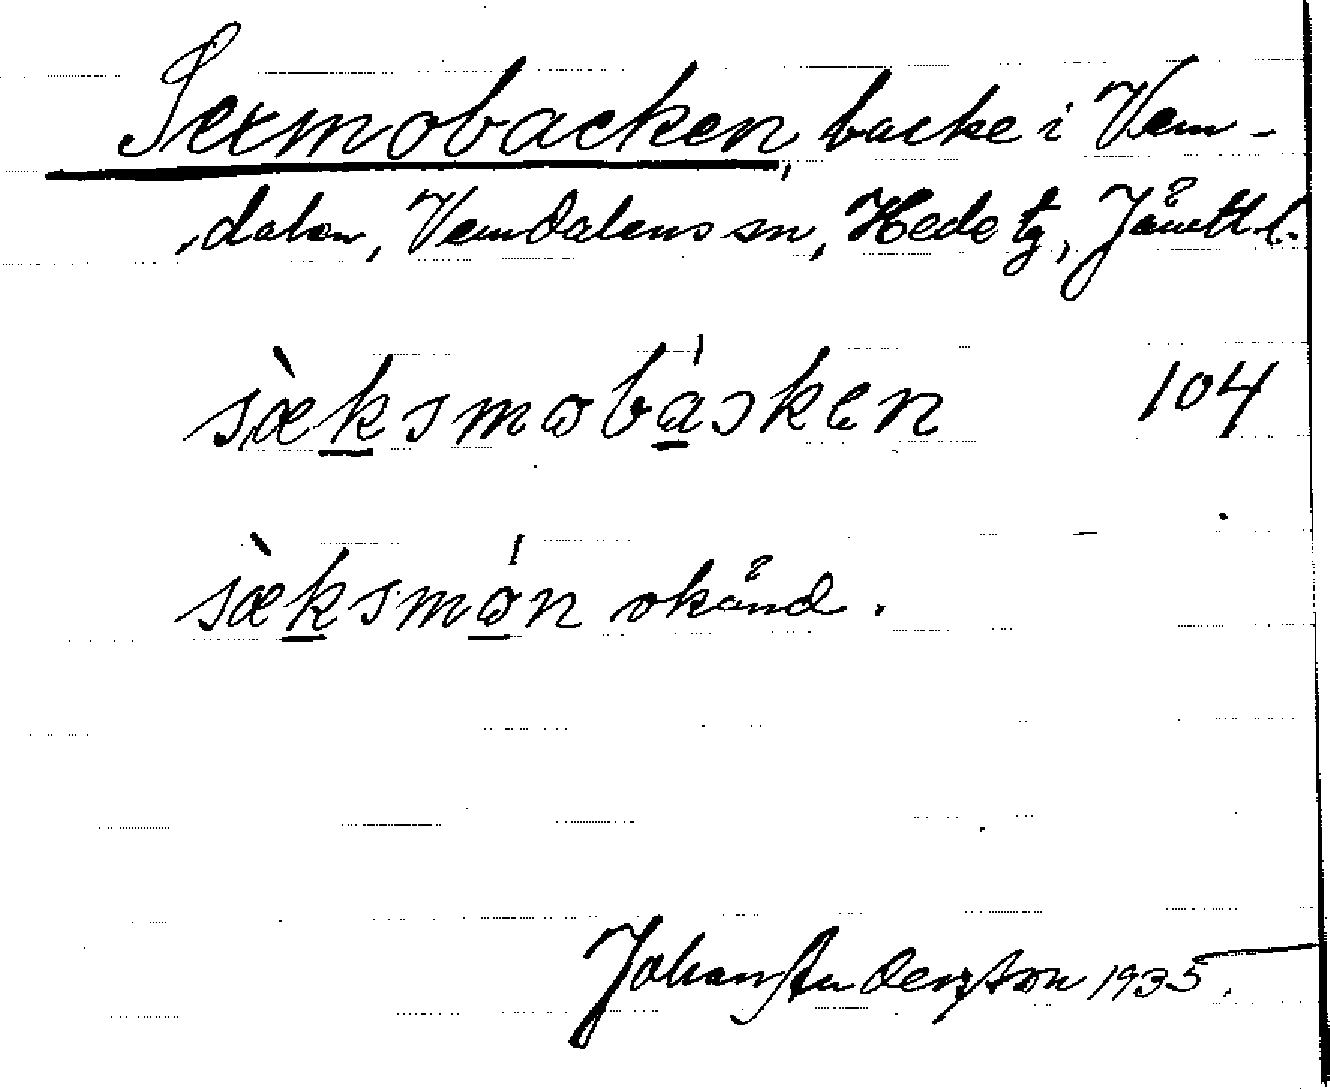 Sexmobacken, backe i Vem-
dalen, Vemdalens sn, Hede tg, Jämtl l.
sæ̀ksmobásken 104
sæ̀ksmón okänd.
Johan Anderzton 1935.